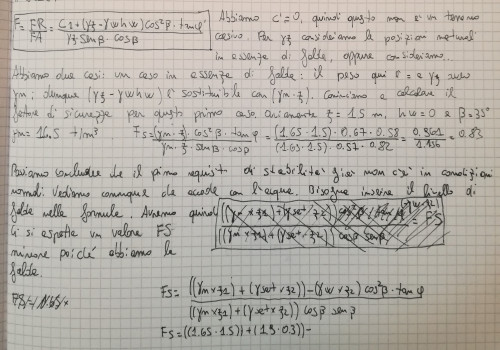 F = FR/FA = C1 + (γz - γw hw) cos²β · tanφ' / γz senβ · cosβ
Abbiamo c' = 0, quindi questo non è un terreno
coesivo. Per γz consideriamo la posizione naturale
in assenza di falda, oppure consideriamo.
Abbiamo due casi: un caso in assenza di falda: il peso qui è = a γz
γm; dunque (γz - γw hw) è sostituibile con (γm · z). Cominciamo a calcolare il
fattore di sicurezza per questo primo caso. Ovviamente z = 1.5 m, hw = 0 e β = 35°
γm = 16.5 t/m³ Fs = (γm · z) · cos²β · tanφ / γm · z · senβ · cosβ = (1.65 · 1.5) · 0.67 · 0.58 / (1.65 · 1.5) · 0.57 · 0.82 = 0.9601 / 1.156 = 0.83
Possiamo concludere che il primo requisito di stabilità già non c'è in condizioni
normali. Vediamo comunque che accade con l'acqua. Bisogna inserire il livello di
falda nella formula. Avremo quindi ((γm × z1) + (γsat × z2)) / ((γm × z1) + (γsat × z2)) cosβ senβ = FS
Ci si aspetta un valore FS
minore poiché abbiamo la
falda.
Fs = ((γm × z1) + (γsat × z2)) - (γw × z2) cos²β · tanφ / ((γm × z1) + (γsat × z2)) cosβ senβ
Fs = ((1.65 · 1.5)) + (1.9 · 0.3)) -